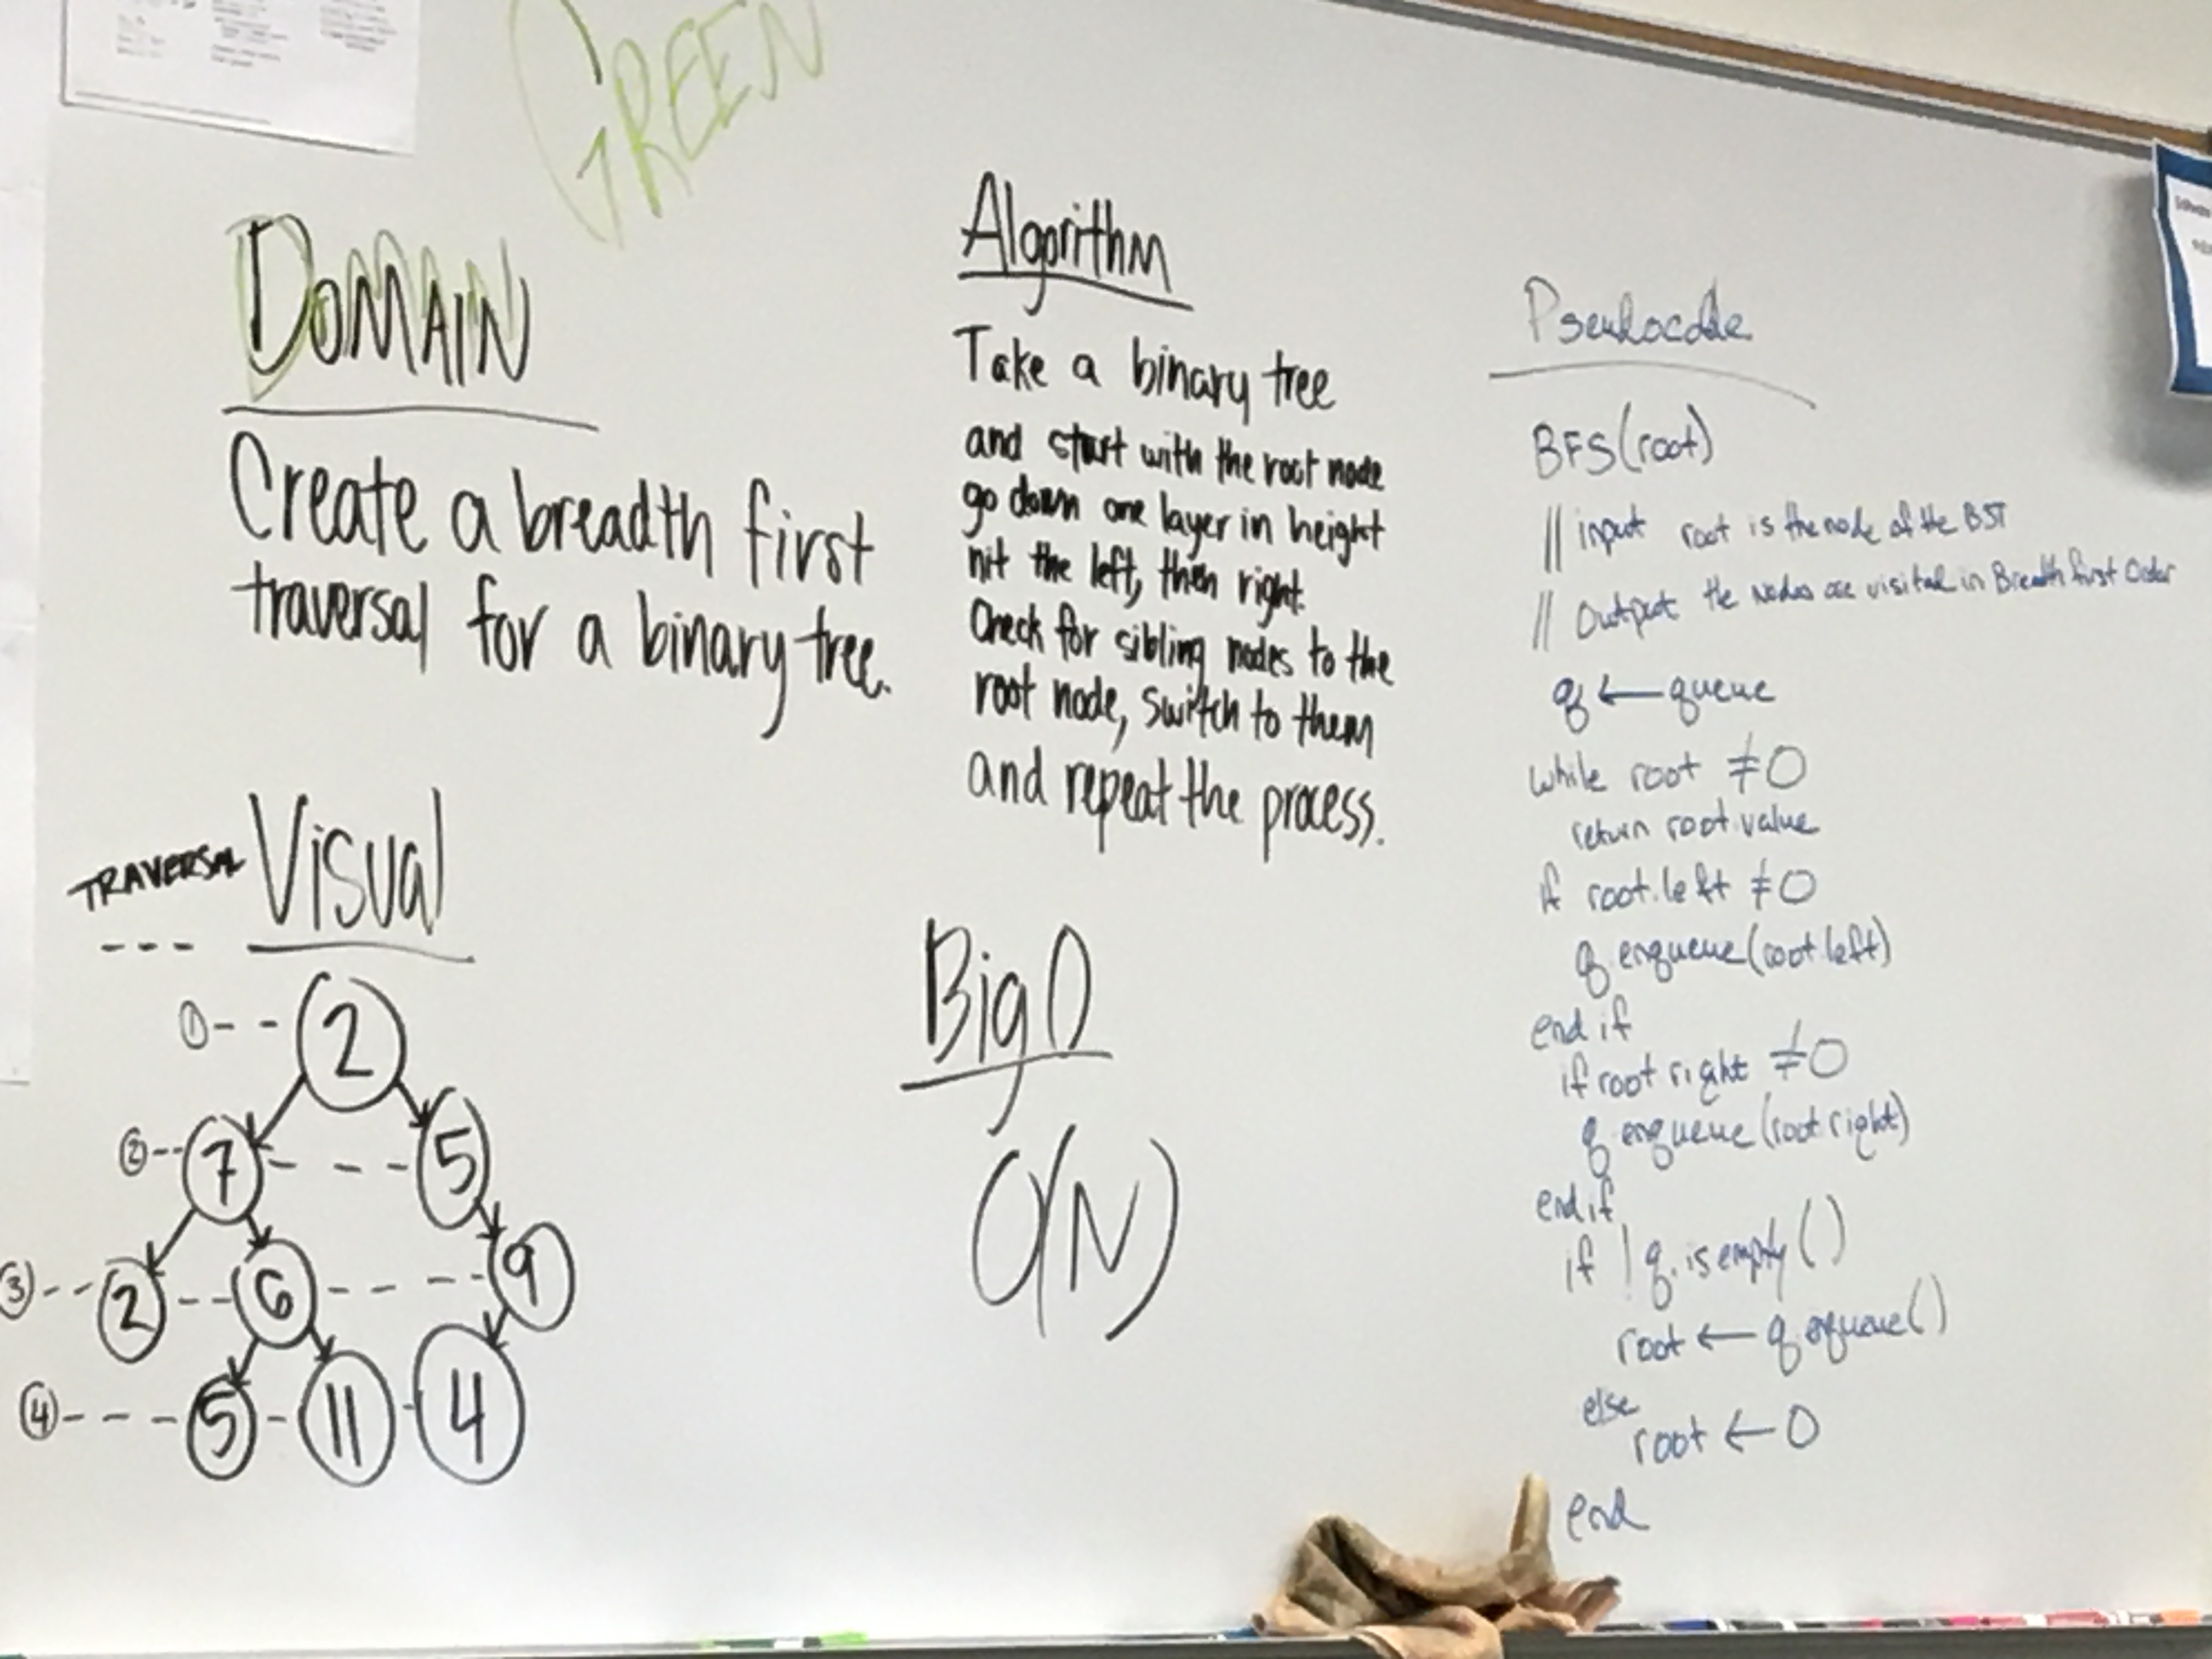 GREEN
DOMAIN
Create a breadth first
traversal for a binary tree.
TRAVERSAL
Visual
① 2
② 7 5
③ 2 6 9
④ 5 11 4
Algorithm
Take a binary tree
and start with the root node
go down one layer in height
hit the left, then right.
Check for sibling nodes to the
root node, switch to them
and repeat the process.
Big O
O(N)
Pseudocode
BFS(root)
// input root is the node of the BST
// Output the nodes are visited in Breadth first Order
q ← queue
while root ≠ 0
return root.value
if root.left ≠ 0
q enqueue(root.left)
end if
if root right ≠ 0
q enqueue(root right)
end if
if ! q. is empty()
root ← q
else
root ← 0
end